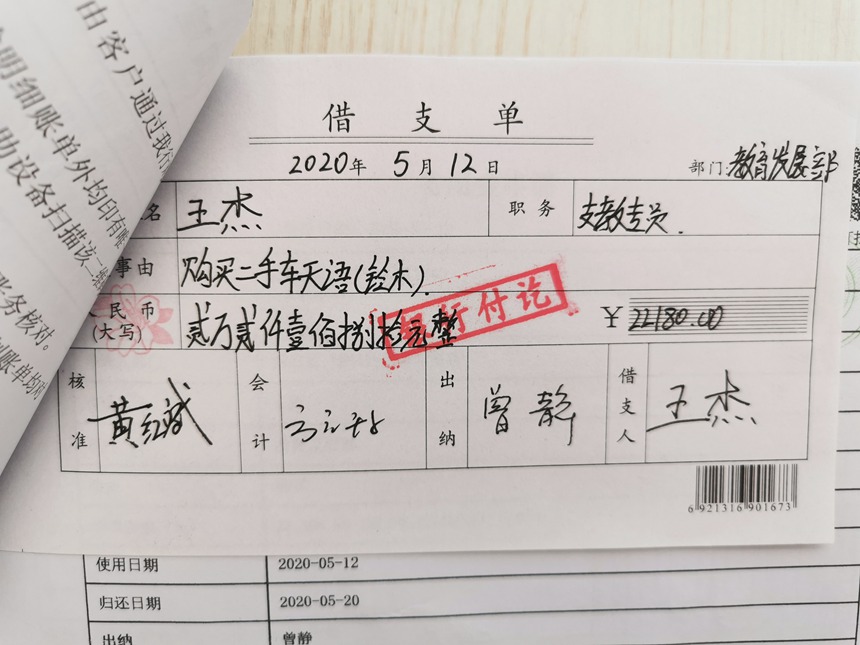 由客户通过我行
明细账单外均印有
助设备扫描该二维
账务核对。
账单均对
借支单
2020年 5月12日 部门:教育发展部
名 王杰 职务 支教专员.
事由 购买二手车天语(铃木).
民币(大写) 贰万贰仟壹佰捌拾元整 ¥22180.00
银行付讫
核准 黄红斌 会计 出纳 曾静 借支人 王杰
6 921316 901673
使用日期 2020-05-12
归还日期 2020-05-20
出纳 曾静